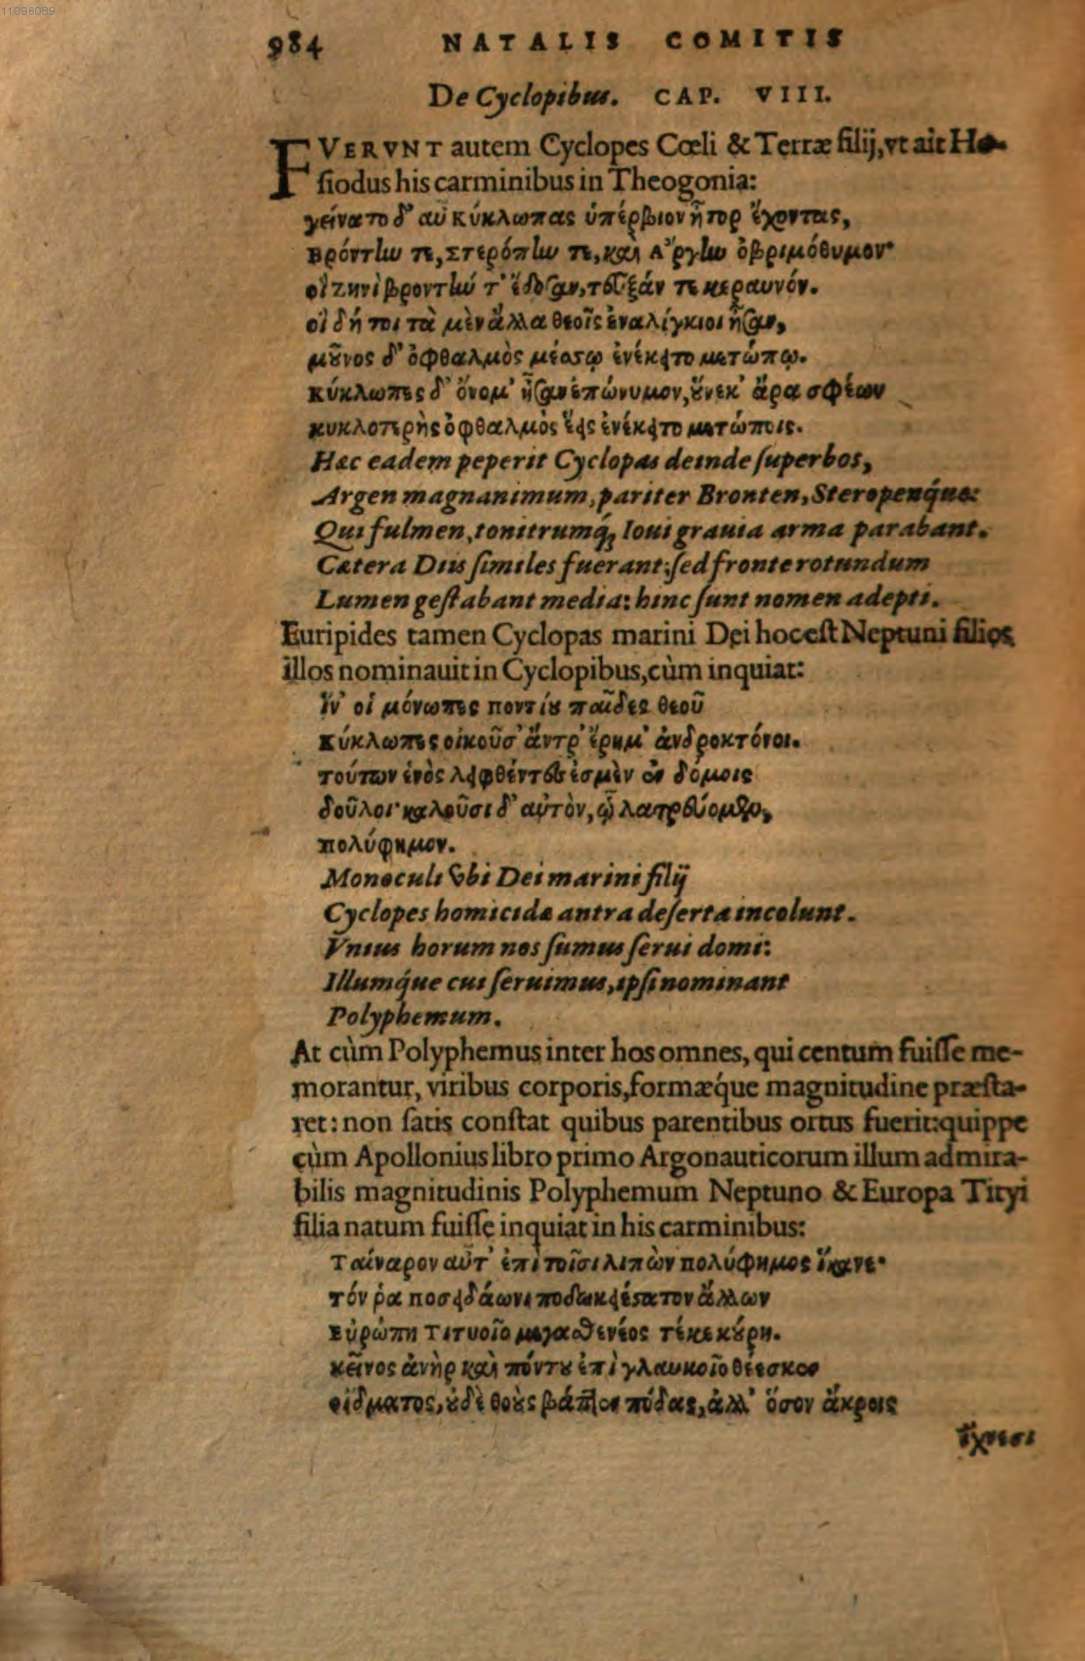 11098089
984 NATALIS COMITIS
De Cyclopibus. CAP. VIII.
FVERVNT autem Cyclopes Cœli & Terræ filij, vt ait He-
siodus his carminibus in Theogonia:
γείνατο δ' αὖ κύκλωπας ὑπέρβιον ἦτορ ἔχοντας,
Βρόντην τε, Στερόπην τε, καὶ Ἄργην ὀβριμόθυμον·
οἳ Ζηνὶ βροντήν τ' ἔδοσαν, τεῦξάν τε κεραυνόν.
οἱ δή τοι τὰ μὲν ἄλλα θεοῖς ἐναλίγκιοι ἦσαν,
μοῦνος δ' ὀφθαλμὸς μέσσῳ ἐνέκειτο μετώπῳ.
Κύκλωπες δ' ὄνομ' ἦσαν ἐπώνυμον, οὕνεκ' ἄρα σφέων
κυκλοτερὴς ὀφθαλμὸς ἕεις ἐνέκειτο μετώποις.
Hæc eadem peperit Cyclopas deinde superbos,
Argen magnanimum, pariter Bronten, Steropenq́ue:
Qui fulmen, tonitrumq́; Ioui grauia arma parabant.
Cætera Diis similes fuerant: sed fronte rotundum
Lumen gestabant media: hinc sunt nomen adepti.
Euripides tamen Cyclopas marini Dei hoc est Neptuni filios
illos nominauit in Cyclopibus, cùm inquiat:
Ἵν' οἱ μόνωπες ποντίου παῖδες θεοῦ
Κύκλωπες οἰκοῦσ' ἄντρ' ἔρημ' ἀνδροκτόνοι.
τούτων ἑνὸς ληφθέντες ἐσμὲν ἐν δόμοις
δοῦλοι· καλοῦσι δ' αὐτὸν, ᾧ λατρεύομεν,
πολύφημον.
Monoculi vbi Dei marini filij
Cyclopes homicidæ antra deserta incolunt.
Vnius horum nos sumus serui domi:
Illumq́ue cui seruimus, ipsi nominant
Polyphemum.
At cùm Polyphemus inter hos omnes, qui centum fuisse me-
morantur, viribus corporis, formæq́ue magnitudine præsta-
ret: non satis constat quibus parentibus ortus fuerit: quippe
cùm Apollonius libro primo Argonauticorum illum admira-
bilis magnitudinis Polyphemum Neptuno & Europa Tityi
filia natum fuisse inquiat in his carminibus:
Ταίναρον αὖτ' ἐπὶ τοῖσι λιπὼν πολύφημος ἵκανε·
τόν ῥα ποσειδάωνι ποδωκηέστατον ἄλλων
Εὐρώπη Τιτυοῖο μεγασθενέος τέκε κούρη.
κεῖνος ἀνὴρ καὶ πόντου ἐπὶ γλαυκοῖο θέεσκεν
οἴδματος, οὐδὲ θοοὺς βάπτεν πόδας, ἀλλ' ὅσον ἄκροις
ἴχνεσι